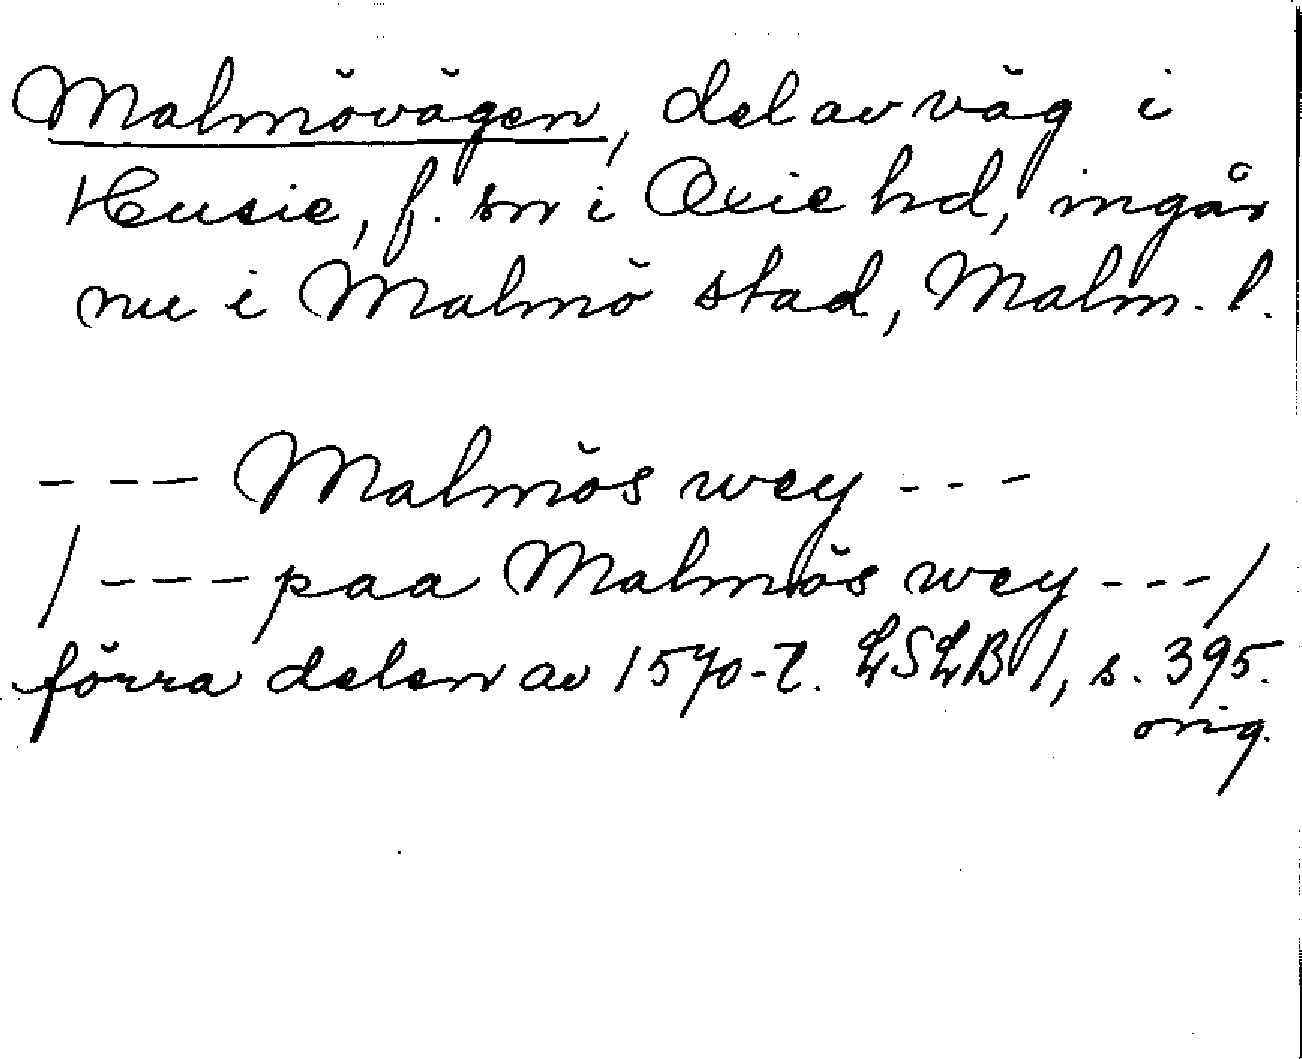 Malmövägen, del av väg i
Husie, f. sn i Oxie hd, ingår
nu i Malmö stad, Malm. l.
--- Malmös wey ---
/---paa Malmös wey---/
förra delen av 1570-t. LSLB 1, s. 395.
orig.